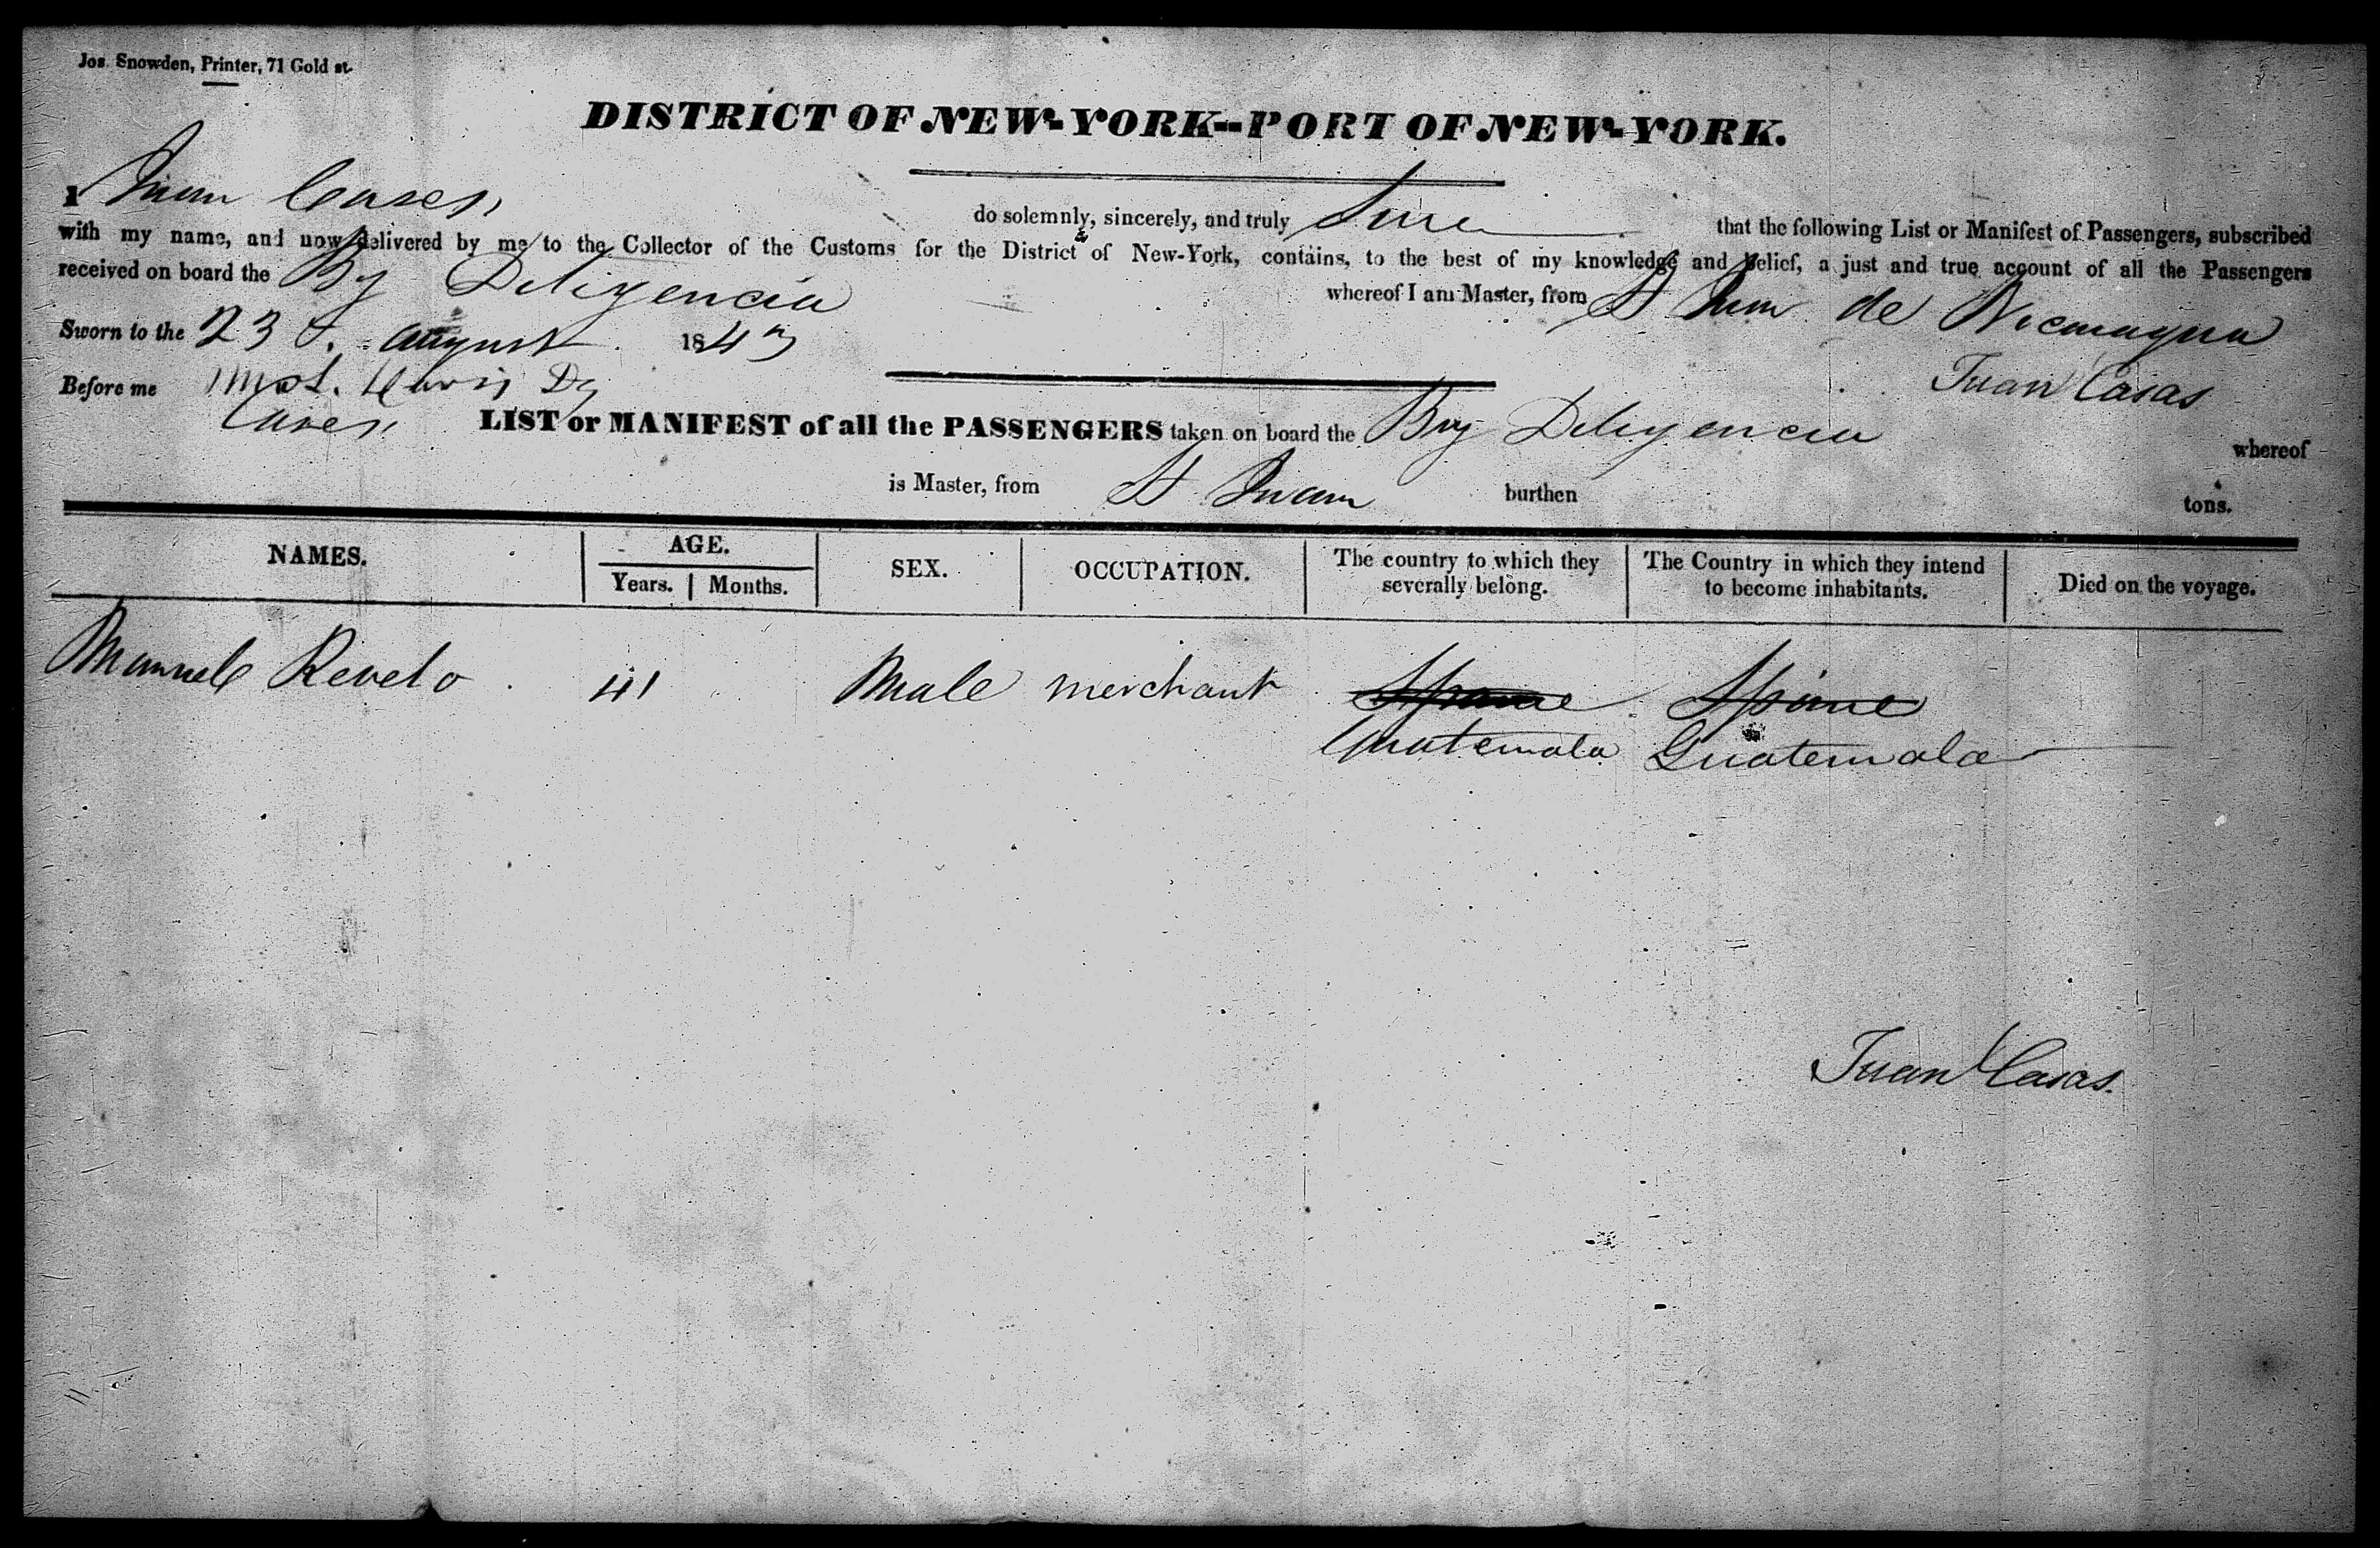 Jos. Snowden, Printer, 71 Gold st.
DISTRICT OF NEW-YORK--PORT OF NEW-YORK.
I Juan Casas, do solemnly, sincerely, and truly that the following List or Manifest of Passengers, subscribed
with my name, and now delivered by me to the Collector of the Customs for the District of New-York, contains, to the best of my knowledge and belief, a just and true account of all the Passengers
received on board the Bg Diligencia whereof I am Master, from St Juan de Nicaragua
Sworn to the 23 August 1843
Before me Juan Casas
LIST or MANIFEST of all the PASSENGERS taken on board the Brig Diligencia whereof
is Master, from St Juan burthen tons.
NAMES. AGE. SEX. OCCUPATION. The country to which they severally belong. The Country in which they intend to become inhabitants. Died on the voyage.
Years. Months.
Manuel Revelo 41 Male merchant Spaine Spaine
Guatemala Guatemala
Juan Casas.